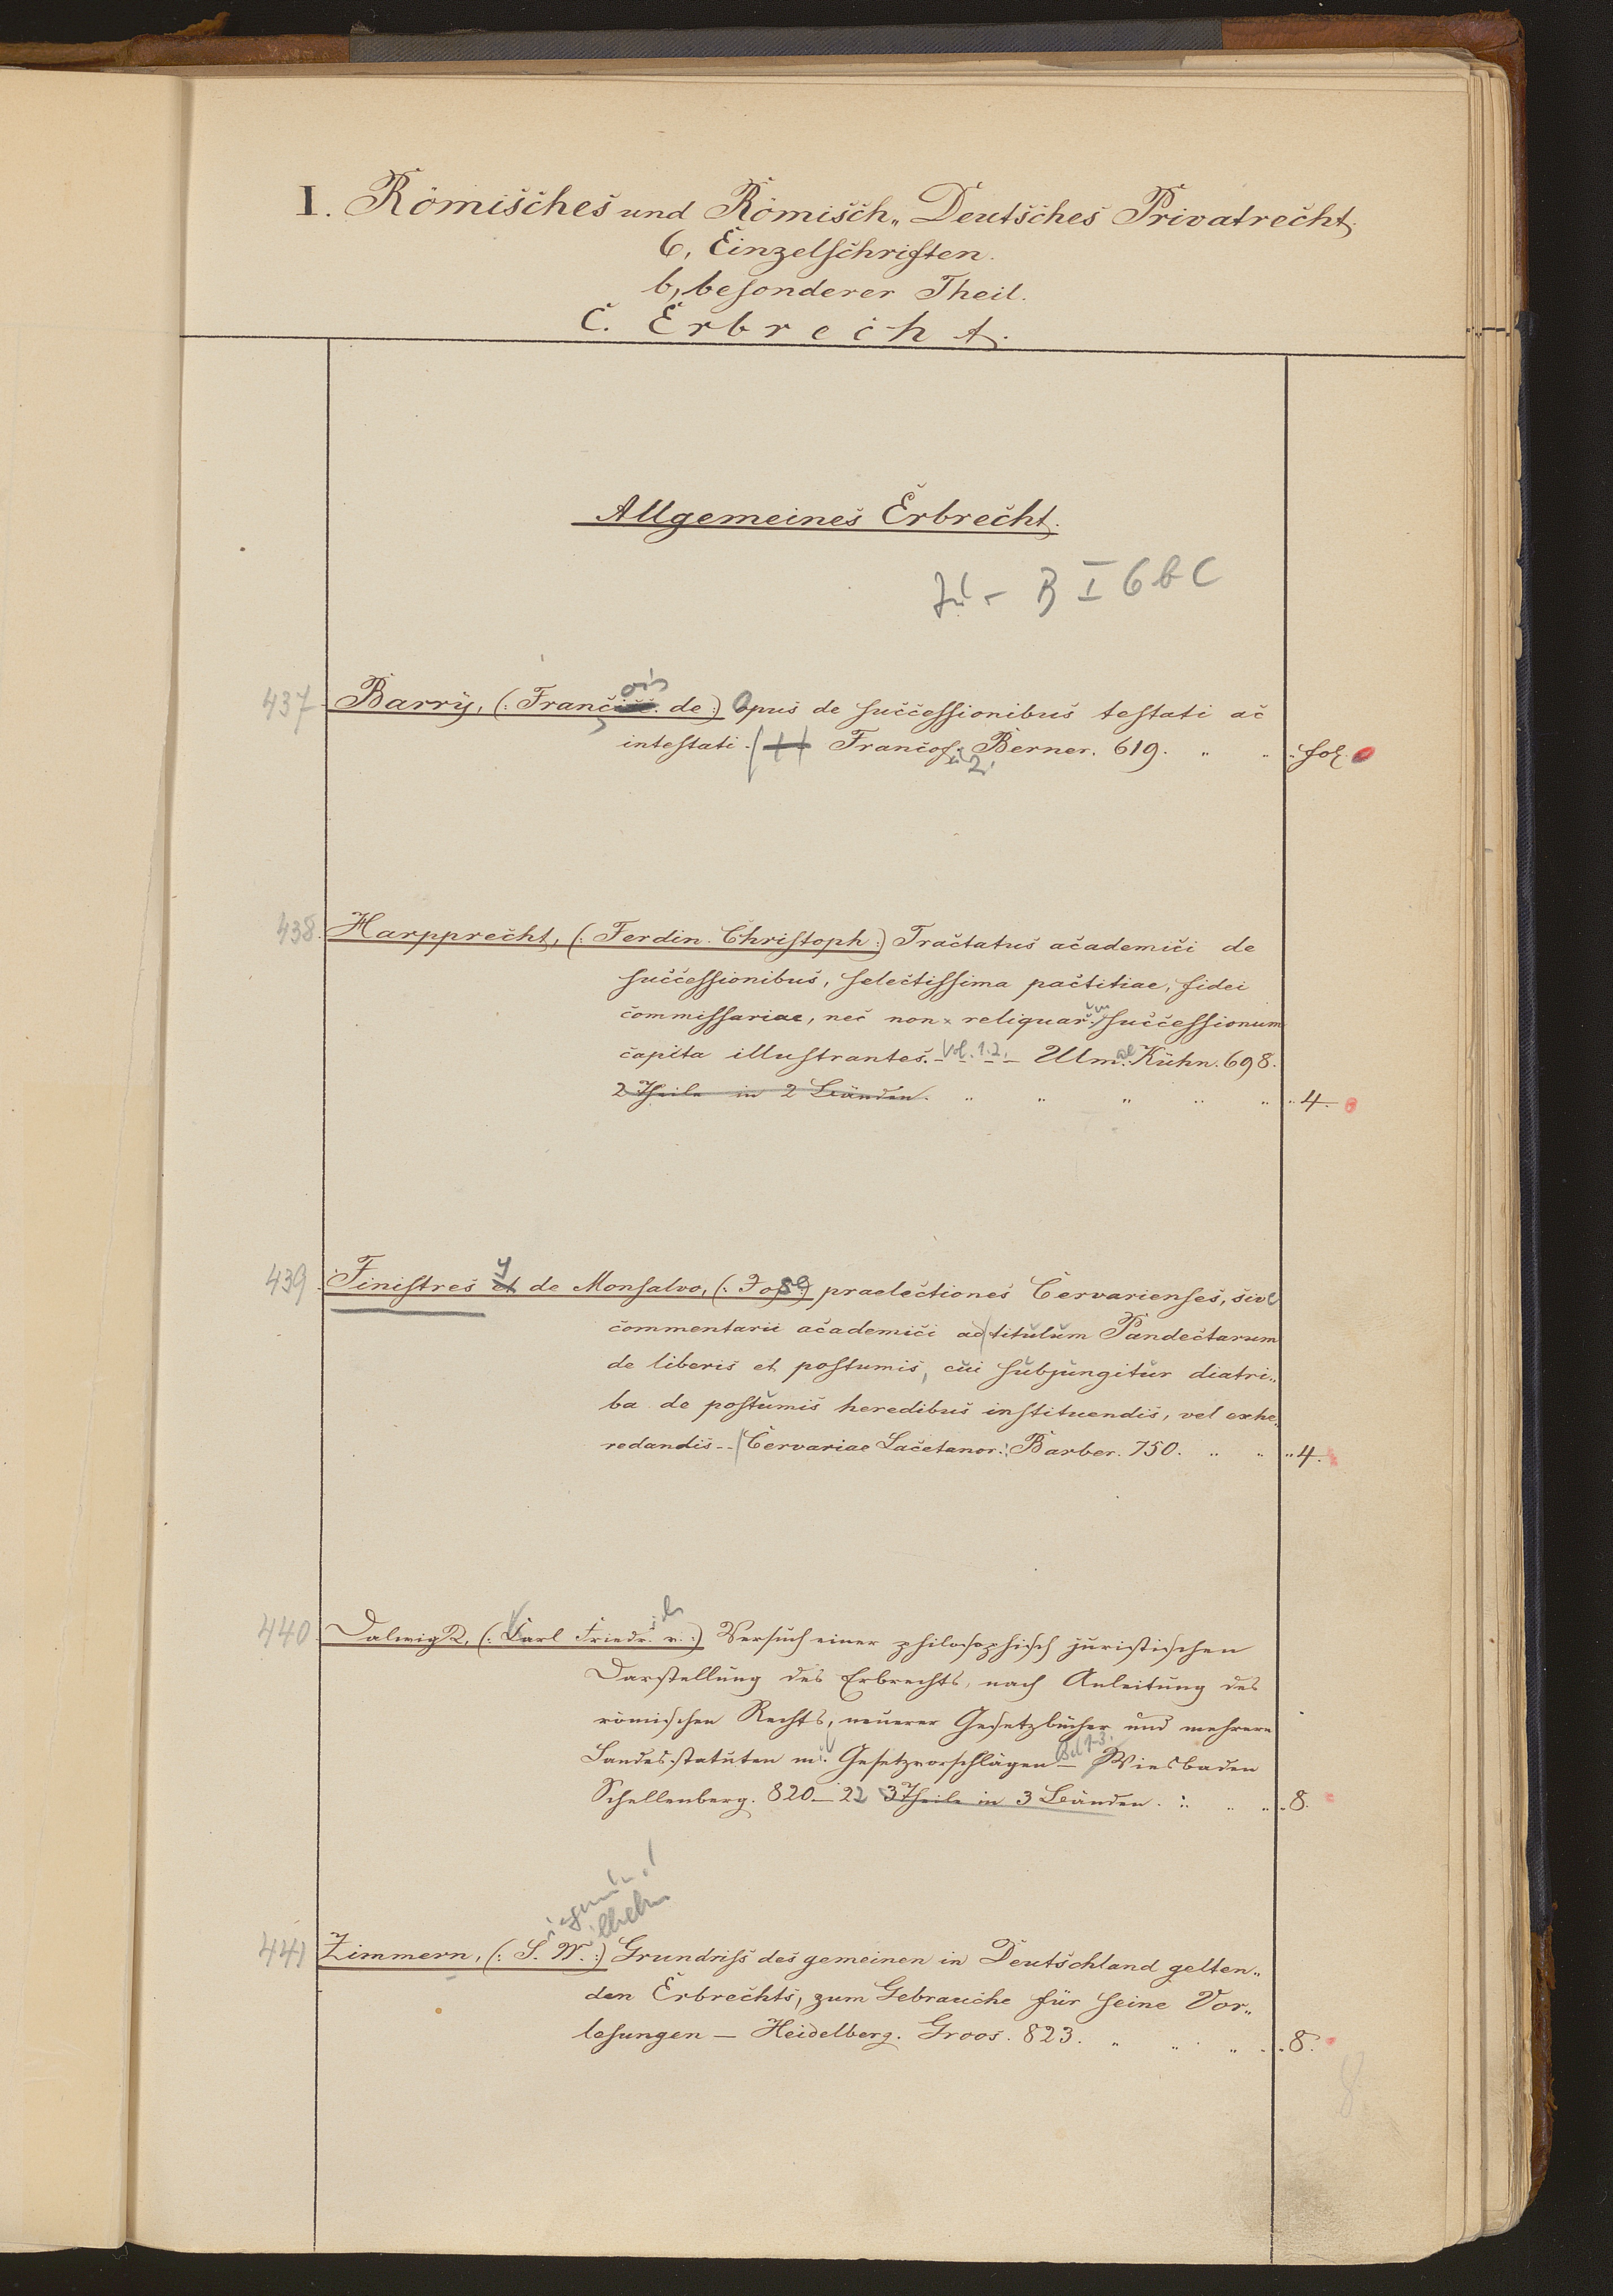 I. Römisches und Römisch„ Deutsches Privatrecht.
6, Einzelschriften.
b, besonderer Theil.
C. Erbrecht.
Allgemeines Erbrecht.
B I 6 b C
437 Barry, (: Franc de :) Opus de successionibus testati ac
intestati. Francof. Berner. 619. „ „ fol.
438. Harpprecht, (: Ferdin. Christoph :) Tractatus academici de
successionibus, selectissima pactitiae, fidei
commissariae, nec non reliquar. successionum
capita illustrantes. - Vol. 1.2. - Ulm. Kühn. 698.
2 Theile in 2 Bänden. „ „ „ „ „ 4.
439 Finistres y de Monsalvo, (: Jose :) praelectiones Cervarienses, sive
commentarii academici ad titulum Pandectarum
de liberis et postumis, cui subjungitur diatri„
ba de postumis heredibus instituendis, vel exhe„
redandis -- Cervariae Lacetanor. Barber. 750. „ „ „ 4.
440 Dalwigk, (: Karl Friedr. v. :) Versuch einer philosophisch juristischen
Darstellung des Erbrechts, nach Anleitung des
römischen Rechts, neuerer Gesetzbücher und mehrere
Landesstatuten mit Gesetzvorschlägen Bd 1-3. — Wiesbaden
Schellenberg. 820—22 3 Theile in 3 Bänden. „ „ „ 8.
441 Zimmern, (: S. W. :) Grundriss des gemeinen in Deutschland gelten„
den Erbrechts, zum Gebrauche für seine Vor„
lesungen — Heidelberg. Groos. 823. „ „ „ 8.